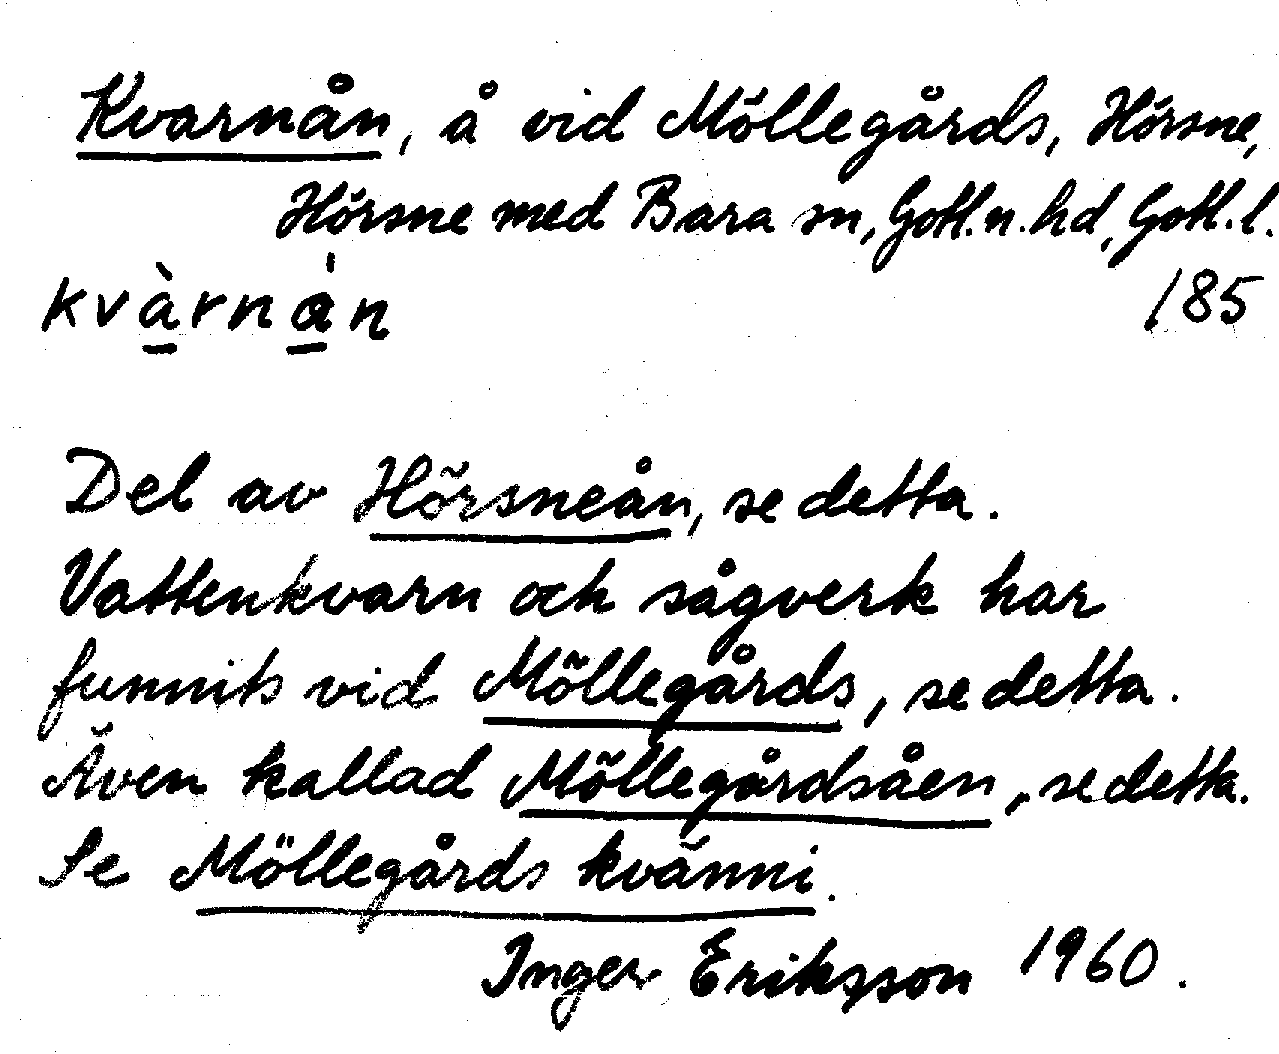 Kvarnån, å vid Möllegårds, Hörsne,
Hörsne med Bara sn, Gotl. n. hd, Gotl. l.
kvà̱rnȧ̱n 185
Del av Hörsneån, se detta.
Vattenkvarn och sågverk har
funnits vid Möllegårds, se detta.
Även kallad Möllegårdsåen, se detta.
Se Möllegårds kvänni.
Inger Eriksson 1960.